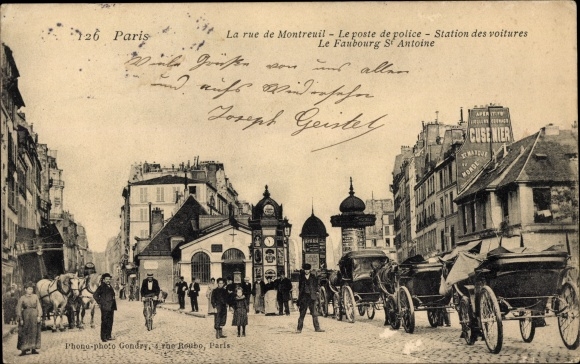 126 Paris
La rue de Montreuil - Le poste de police - Station des voitures
Le Faubourg St Antoine
Viele Grüße von uns allen
und aufs Wiedersehn
Joseph Geistel
APÉRITIF
CUSENIER
Phono-photo Gondry, 4 rue Roubo, Paris